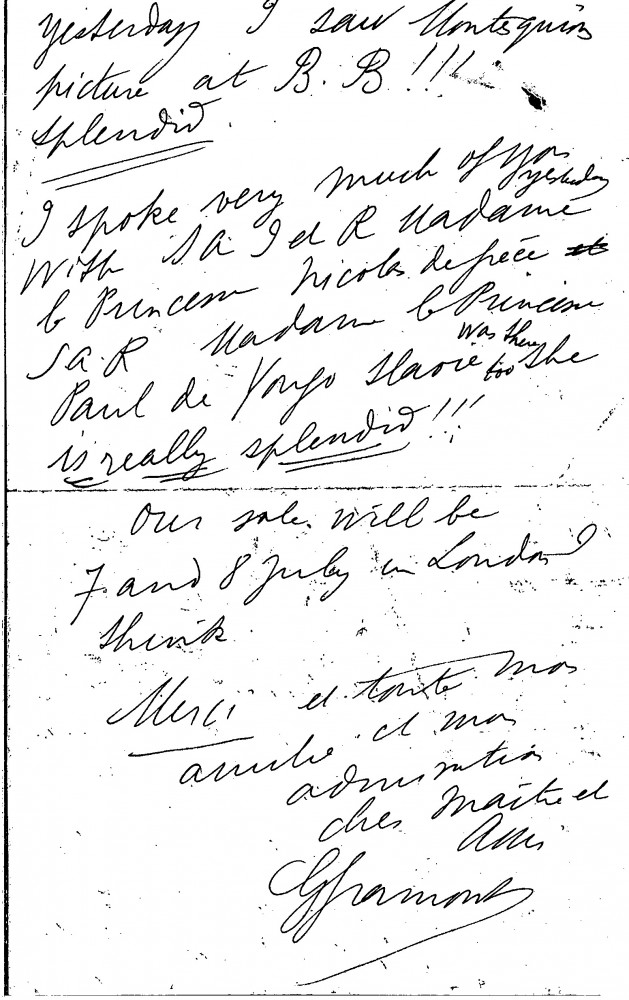 yesterday I saw Montesquiou
picture at B. B!!!
splendid.
I spoke very much of you
yesterday
with S A I et R Madame
la Princesse Nicolas de Grèce
S A. R Madame la Princesse
was there
Paul de Yougo Slavie too She
is really splendid!!!
Our sale will be
7 and 8 July in London I
think
Merci et toute mon
amitié et mon
admiration
cher Maître et
Ami
GGramont